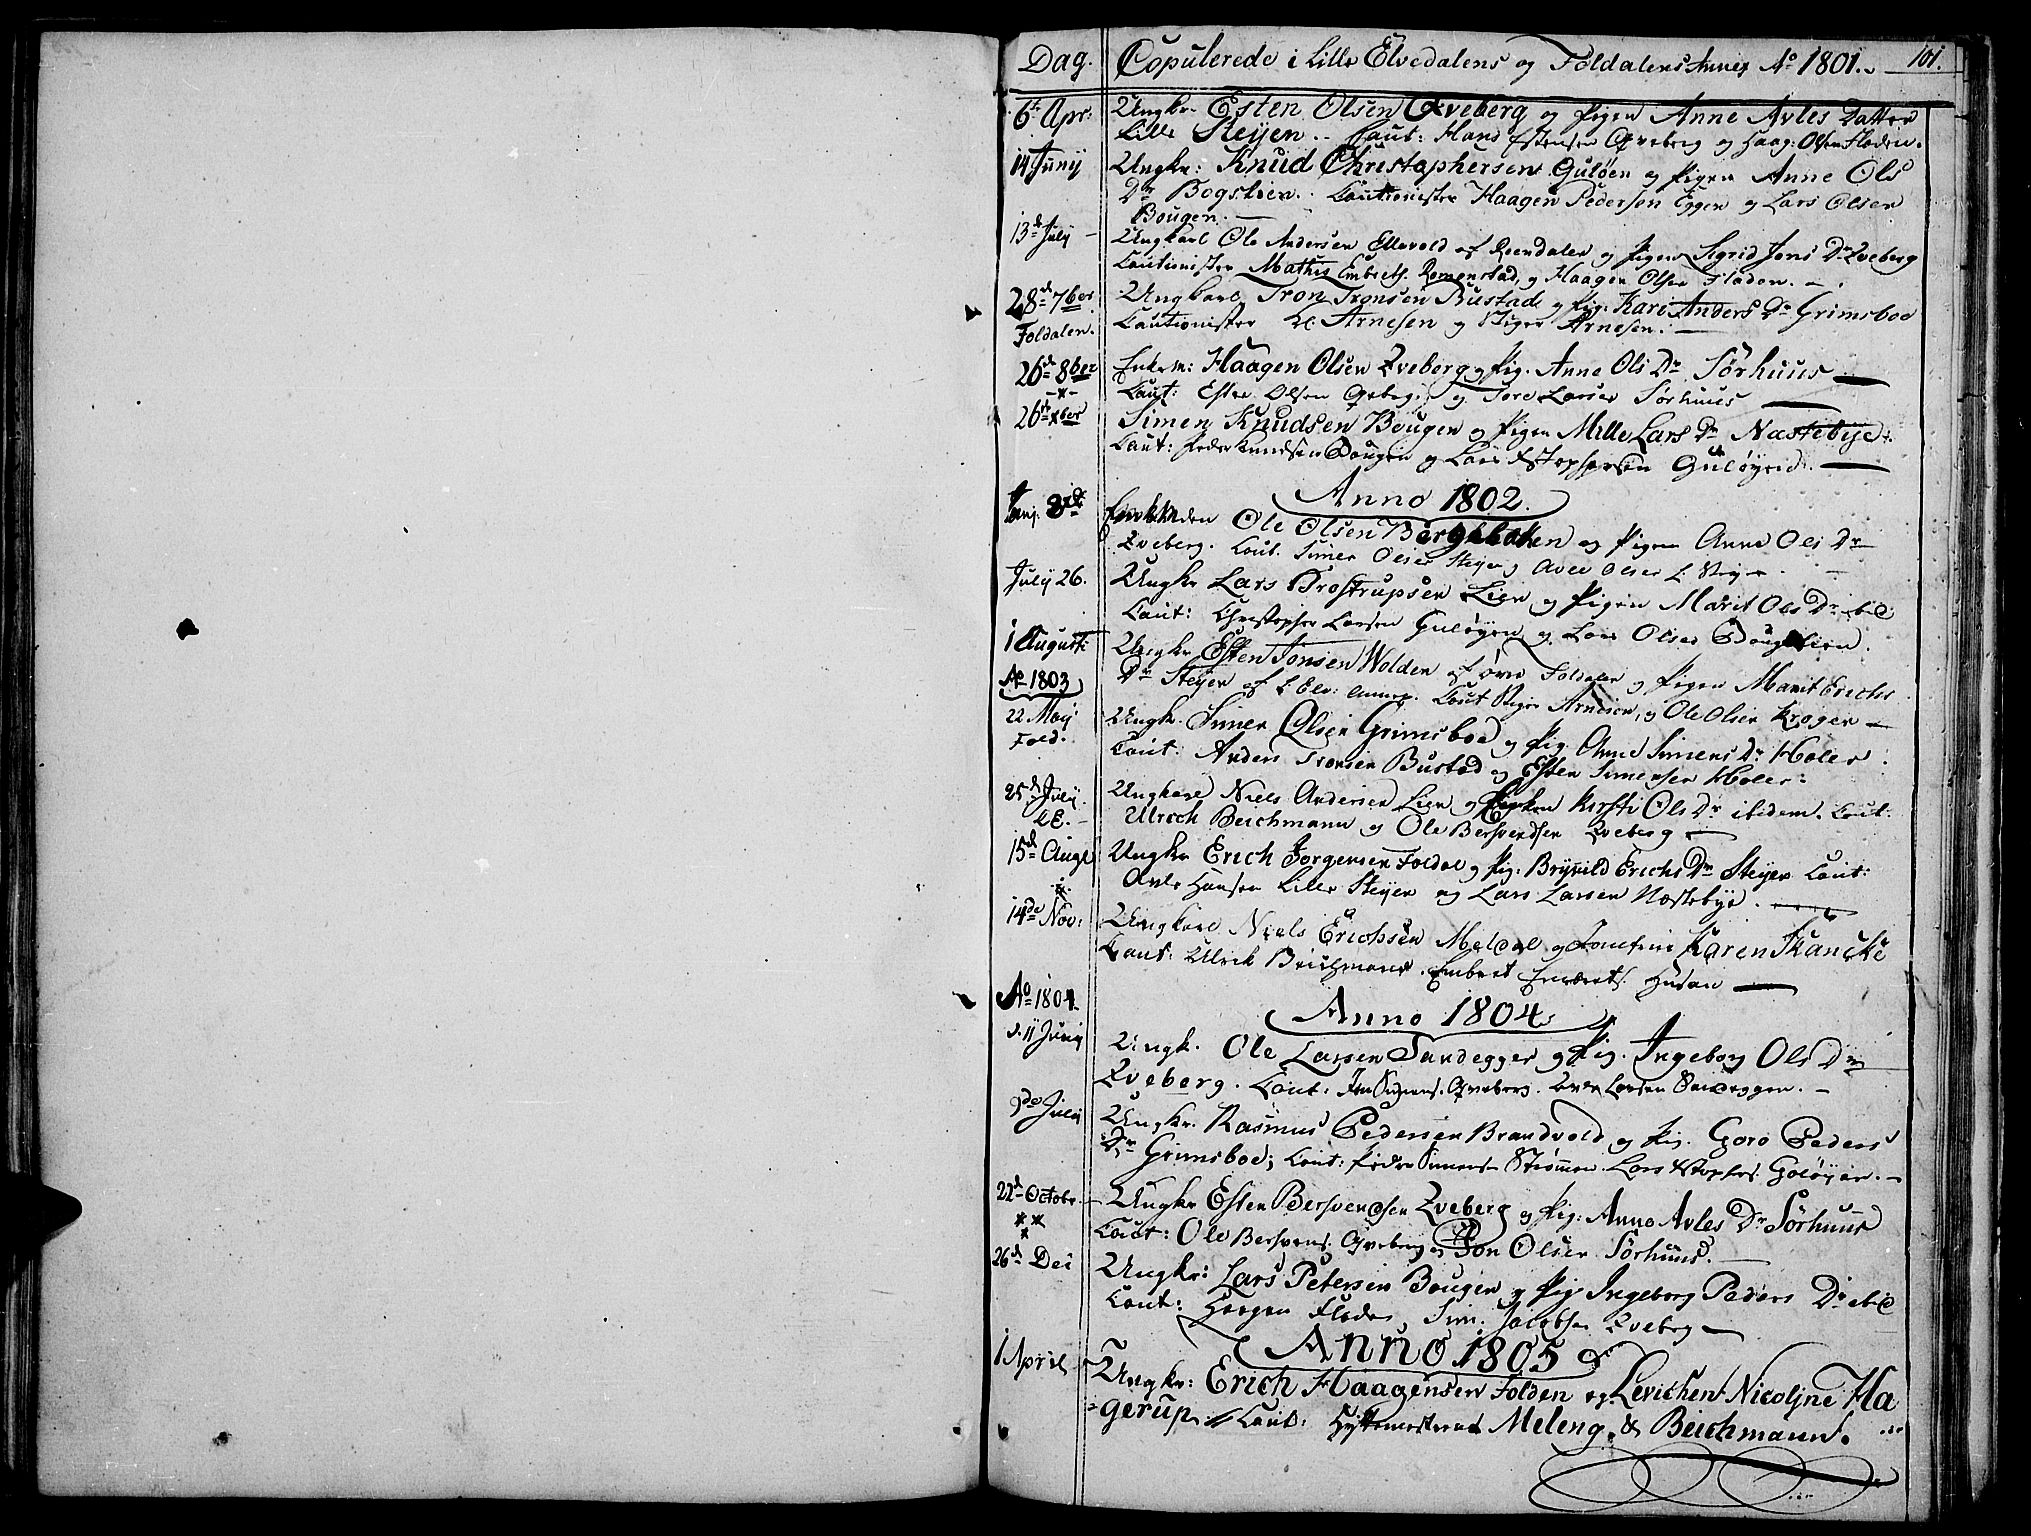 Dag. Copulerede i Lille Elvedalens og Foldalens Annex Ao 1801. 101.
6te Apr: Ungkr. Esten Olsen Qveberg og Pigen Anne Avles Datter
Lille Steyen. Caut: Hans Estensen Qveberg og Haag: Olsen Floden.
14 Junÿ Ungkr: Knud Christophersen Guløen og Pigen Anne Ols
Dr Bogstien. Cautionister Haagen Pedersen Eggen og Lars Olsen
Bougen.
13de July Ungkarl Ole Andersen Ellevold af Reendalen og Pigen Sigrid Jons Dr Qveberg
Cautionister Mathis Embrets. Romenstad, og Haagen Olsen Floden.
28de 7ber Ungkarl Tron Tronsen Bustad og Pig. Kari Anders Dr Grimsboe
Foldalen. Cautionister Arnesen og Stiger Arnesen.
26de 8ber Enkem: Haagen Olsen Qveberg og Pig. Anne Ols Dr Sørhuus
Caut: Esten Olsen Qveberg og Tore Larsen Sørhuus
26de xber Simen Knudsen Bougen og Pigen Mille Lars Dr Nastebye.
Caut: Peder Knudsen Bougen og Lars Xstophersen Guløyen.
Anno 1802.
Janj. Enkem Ole Olsen og Pigen Anne Ols Dr
Qveberg. Caut. Simen Olsen Steyen og Avle Olsen L. Stey
Julÿ 26. Ungkr Lars Trostrupsen Lien og Pigen Marit Ols Dr ibid
Caut: Christopher Larsen Guløyen og Lars Olsen Bougstien.
1 Augusti Ungkr Esten Jonsen Wolden af øvre Foldalen og Pigen Marit Erichs
Ao 1803 Dr Steyen af L: Elv: Annex. Caut Stiger Arnesen, og Ole Olsen Krogen
22 Maÿ Ungk. Simen Olsen Grimsboe og Pig. Anne Simens Dr Holen.
Fold. Caut: Anders Tronsen Bustad og Esten Simensen Holen:
25de Julÿ Ungkarl Niels Andersen Lien og Kirsti Ols Dr ibidem. Caut:
LE. Ulrich Beichmann og Ole Bersvendsen Qveberg
15de Augs Ungkr Erich Jorgensen Foldal og Pig. Brynild Erichs Dr Steyen Caut:
Avle Hansen Lille Steyen og Lars Larsen Nastebye.
14de Nov: Ungkarl Niels Erichsen Meldal og Jomfrue Karen Skancke
Caut: Ulrik Beichmann. Embret Embrets. Husan
Ao 1804.
Anno 1804.
d. 11 Junÿ Ungk. Ole Larsen Sandeggen og Pig. Ingeborg Ols Dr
Qveberg. Caut: Qveberg. Larsen Sandeggen.
9de Julÿ Ungkr. Rasmus Pedersen Brandvold og Pig. Goro Peders
Dr Grimsboe; Caut: Peder Simensen Strømmen Lars Xstophs. Guløyen.
22de Octobr. Ungkr Esten Bersvendsen Qveberg og Pig: Anne Avles Dr Sørhuus
Caut: Ole Bersvens. Qveberg og Jon Olsen Sørhuus.
26de Dec Ungkr: Lars Petersen Bougen og Pige Ingeborg Peders Dr ibid
Caut: Haagen Floden, Sim. Jacobsen Qveberg
Anno 1805
1 April Ungkr: Erich Haagensen Folden og Levichen Nicoljne Ha
gerup. Caut: Hyttemesterne Meleng. & Beichmann.